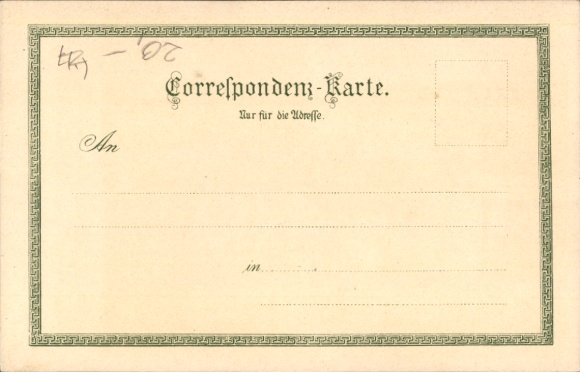 20,–
Correspondenz-Karte.
Nur für die Adresse.
An
in